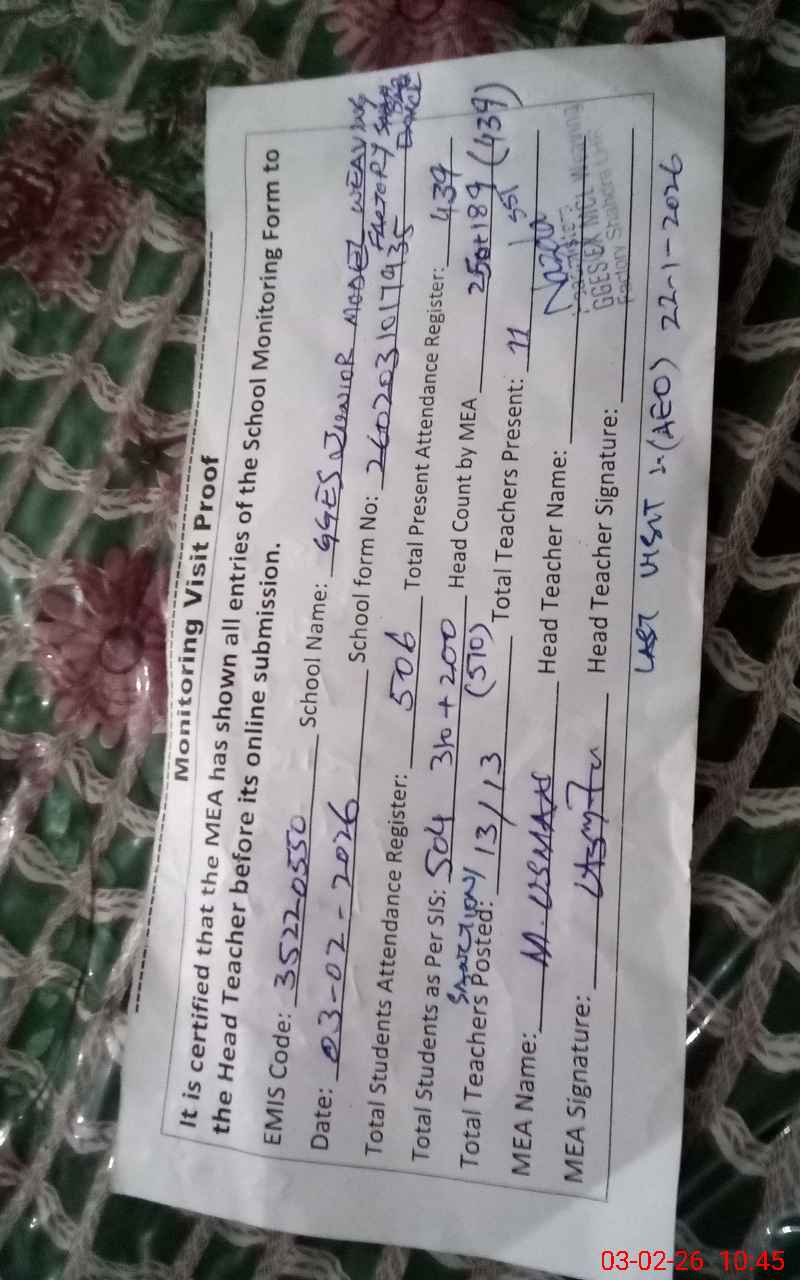 Monitoring Visit Proof
It is certified that the MEA has shown all entries of the School Monitoring Form to
the Head Teacher before its online submission.
EMIS Code: 35220550 School Name: GGES JUNIOR MODEL WEAVING
FACTORY
Date: 03-02-2026 School form No: 2602031017935
Total Students Attendance Register: 506 Total Present Attendance Register: 439
Total Students as Per SIS: 504 310+200 Head Count by MEA 250+189 (439)
SANCTION/ (510)
Total Teachers Posted: 13/13 Total Teachers Present: 11
MEA Name: M. USMAN Head Teacher Name:
MEA Signature: Head Teacher Signature:
GGES(E)
LAST VISIT :-(AEO) 22-1-2026
03-02-26 10:45